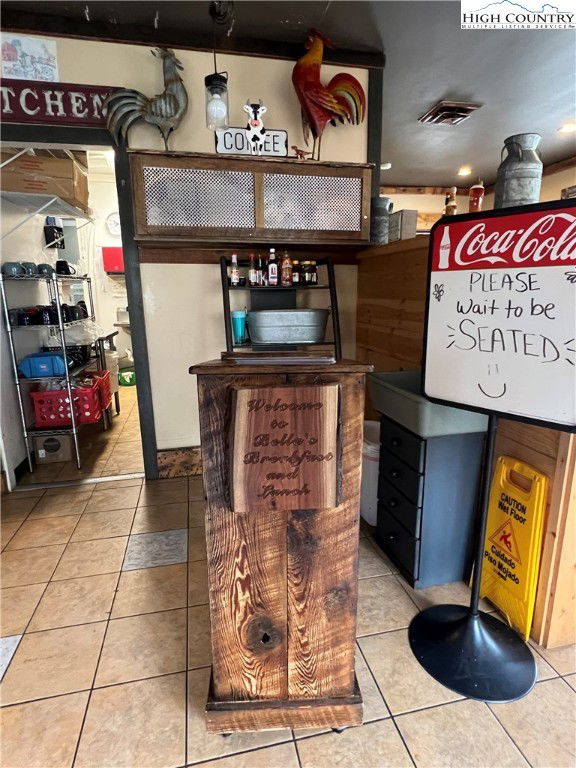 HIGH COUNTRY
MULTIPLE LISTING SERVICE
KITCHEN
COFFEE
Coca-Cola
PLEASE
Wait to be
SEATED
Welcome
to
Belle's
Breakfast
and
Lunch
CAUTION
Wet Floor
Cuidado
Piso Mojado